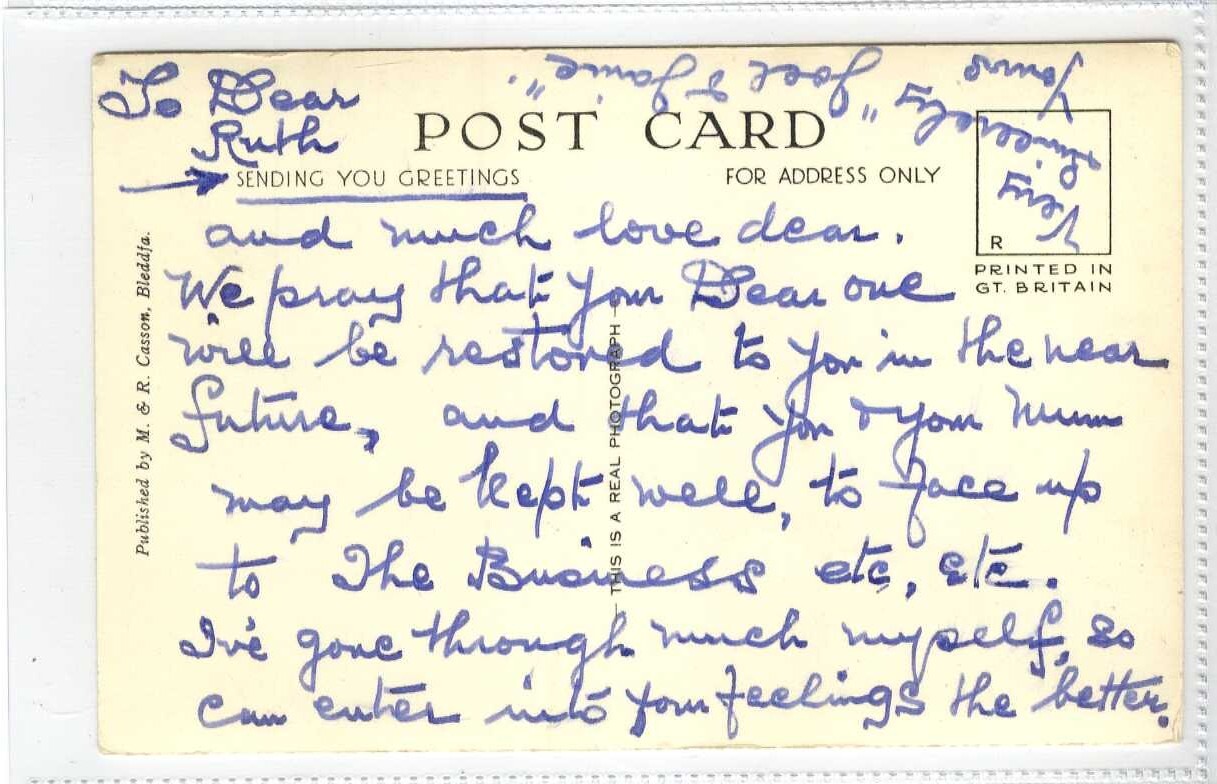 To Dear
Ruth
POST CARD
SENDING YOU GREETINGS
FOR ADDRESS ONLY
and much love dear.
We pray that your Dear one
will be restored to you in the near
future, and that you & your Mum
may be kept well, to face up
to The Business etc, etc.
I've gone through much myself, so
can enter into your feelings the better.
Yours
Very
Sincerely
"Joel & Janie".
R
PRINTED IN
GT. BRITAIN
Published by M. & R. Casson, Bleddfa.
THIS IS A REAL PHOTOGRAPH